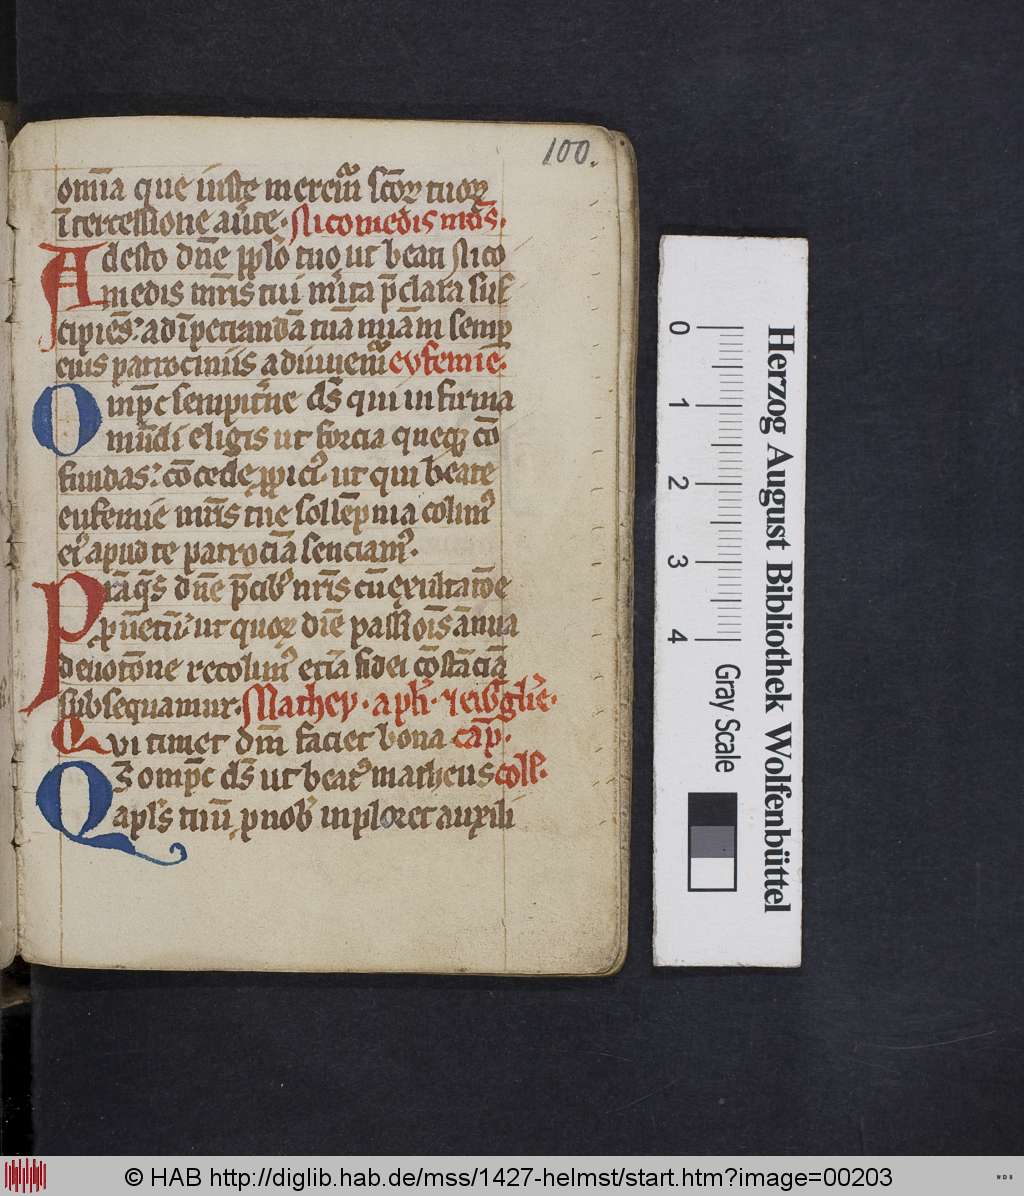 100.
om̄ia que iuste merem̄ sc̄oꝝ tuoꝝ
ītercessione aūte. Nicomedis mr̄is.
Adesto dn̄e pp̄lo tuo ut beati Nico
medis mr̄is tui mīta p̄clara sus
cipiēs: ad īpetrandā tuā miām semp̄
eius patrociniis adiuuem̄ eufemie.
Omp̄c sempit̄ne ds̄ qui infirma
mūdi eligis ut forcia queqꝫ cō
fundas: cōcede p̄pici᷒ ut qui beate
eufemie mr̄is tue sollēpnia colim᷒
ei᷒ apud te patrociā senciam᷒.
Pr̄a q̄s dn̄e p̄cib᷒ nr̄is cū exultatōe
ꝓuētū ut quoꝝ diē passiōis ānua
deuotōne recolim᷒ eciā fidei cōstāciā
subsequamur. Mathey. apl̄i. ⁊ ewāgl̄ie.
Qui timet dm̄ faciet bona cap̄.
Qꝫ omp̄c ds̄ ut beat᷒ matheus coll̄.
apl̄s tuū ꝓ nob᷒ inploret auxili
0 1 2 3 4
Gray Scale
Herzog August Bibliothek Wolfenbüttel
© HAB http://diglib.hab.de/mss/1427-helmst/start.htm?image=00203